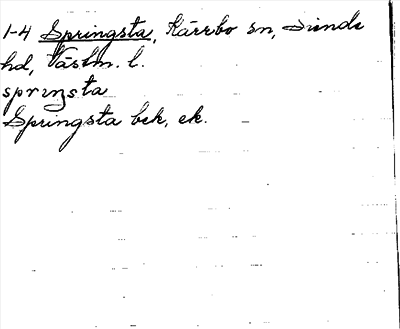 1-4 Springsta, Kärrbo sn, Siende
hd, Västm. l.
sprıŋsta
Springsta bek, ek.